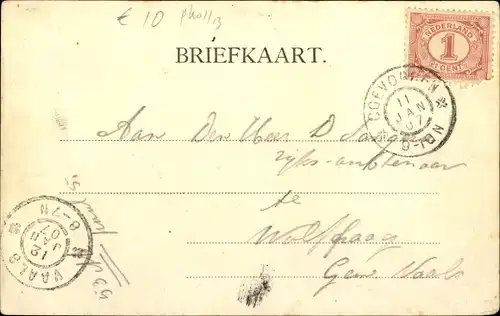 € 10
BRIEFKAART.
NEDERLAND
1
CENT
COEVORDEN
11
JAN
07
Aan Den Heer D
rijks-ambtenaar
te
Wolfhaag
Gem Vaals
VAALS
12
JAN
07
6-7N